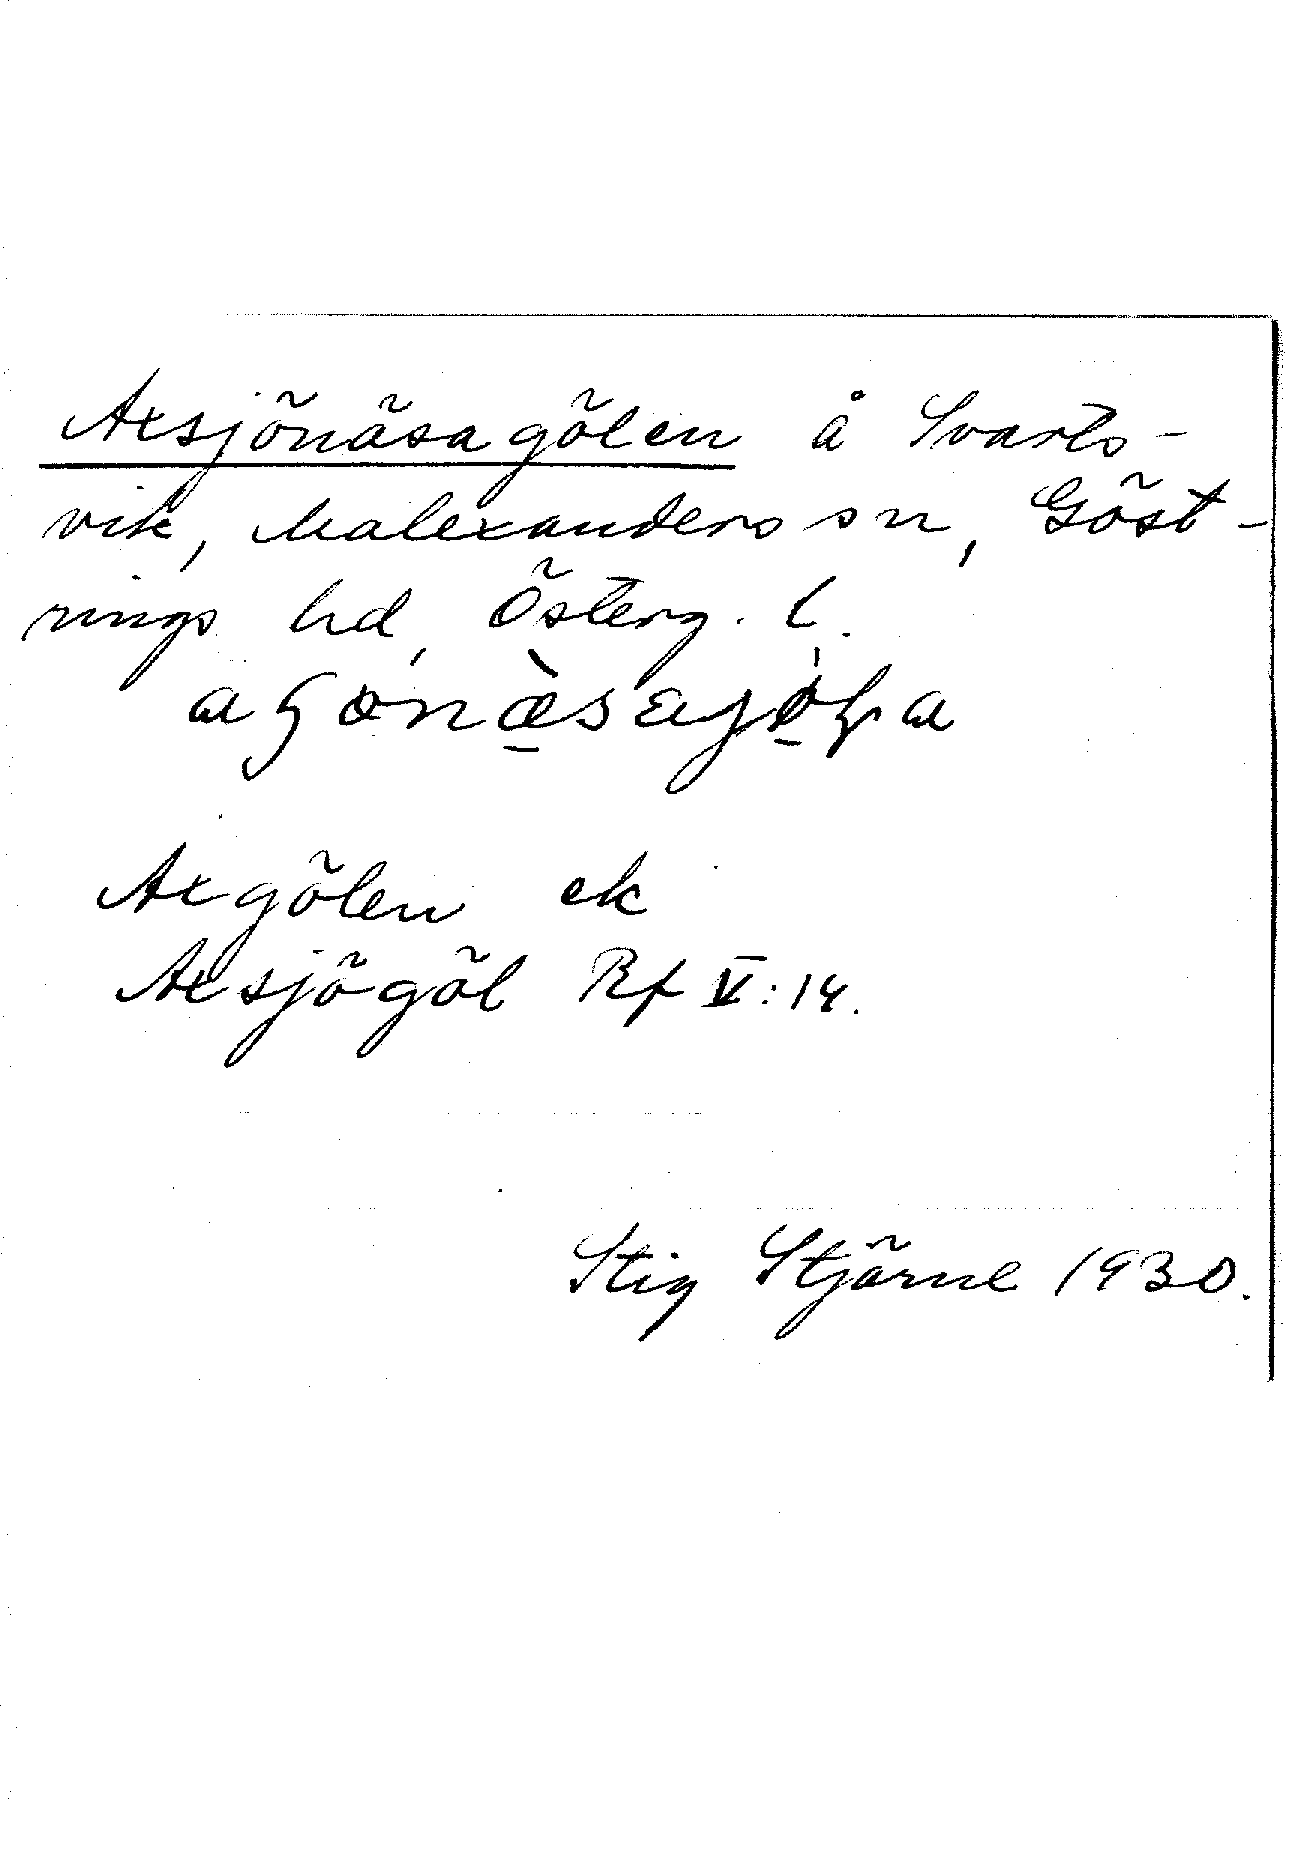 Axsjönäsagölen å Svarts-
vik, Malexanders sn, Göst-
rings hd, Österg. l.
Axgölen ek
Axsjögöl Rf V:14.
Stig Stjärne 1930.